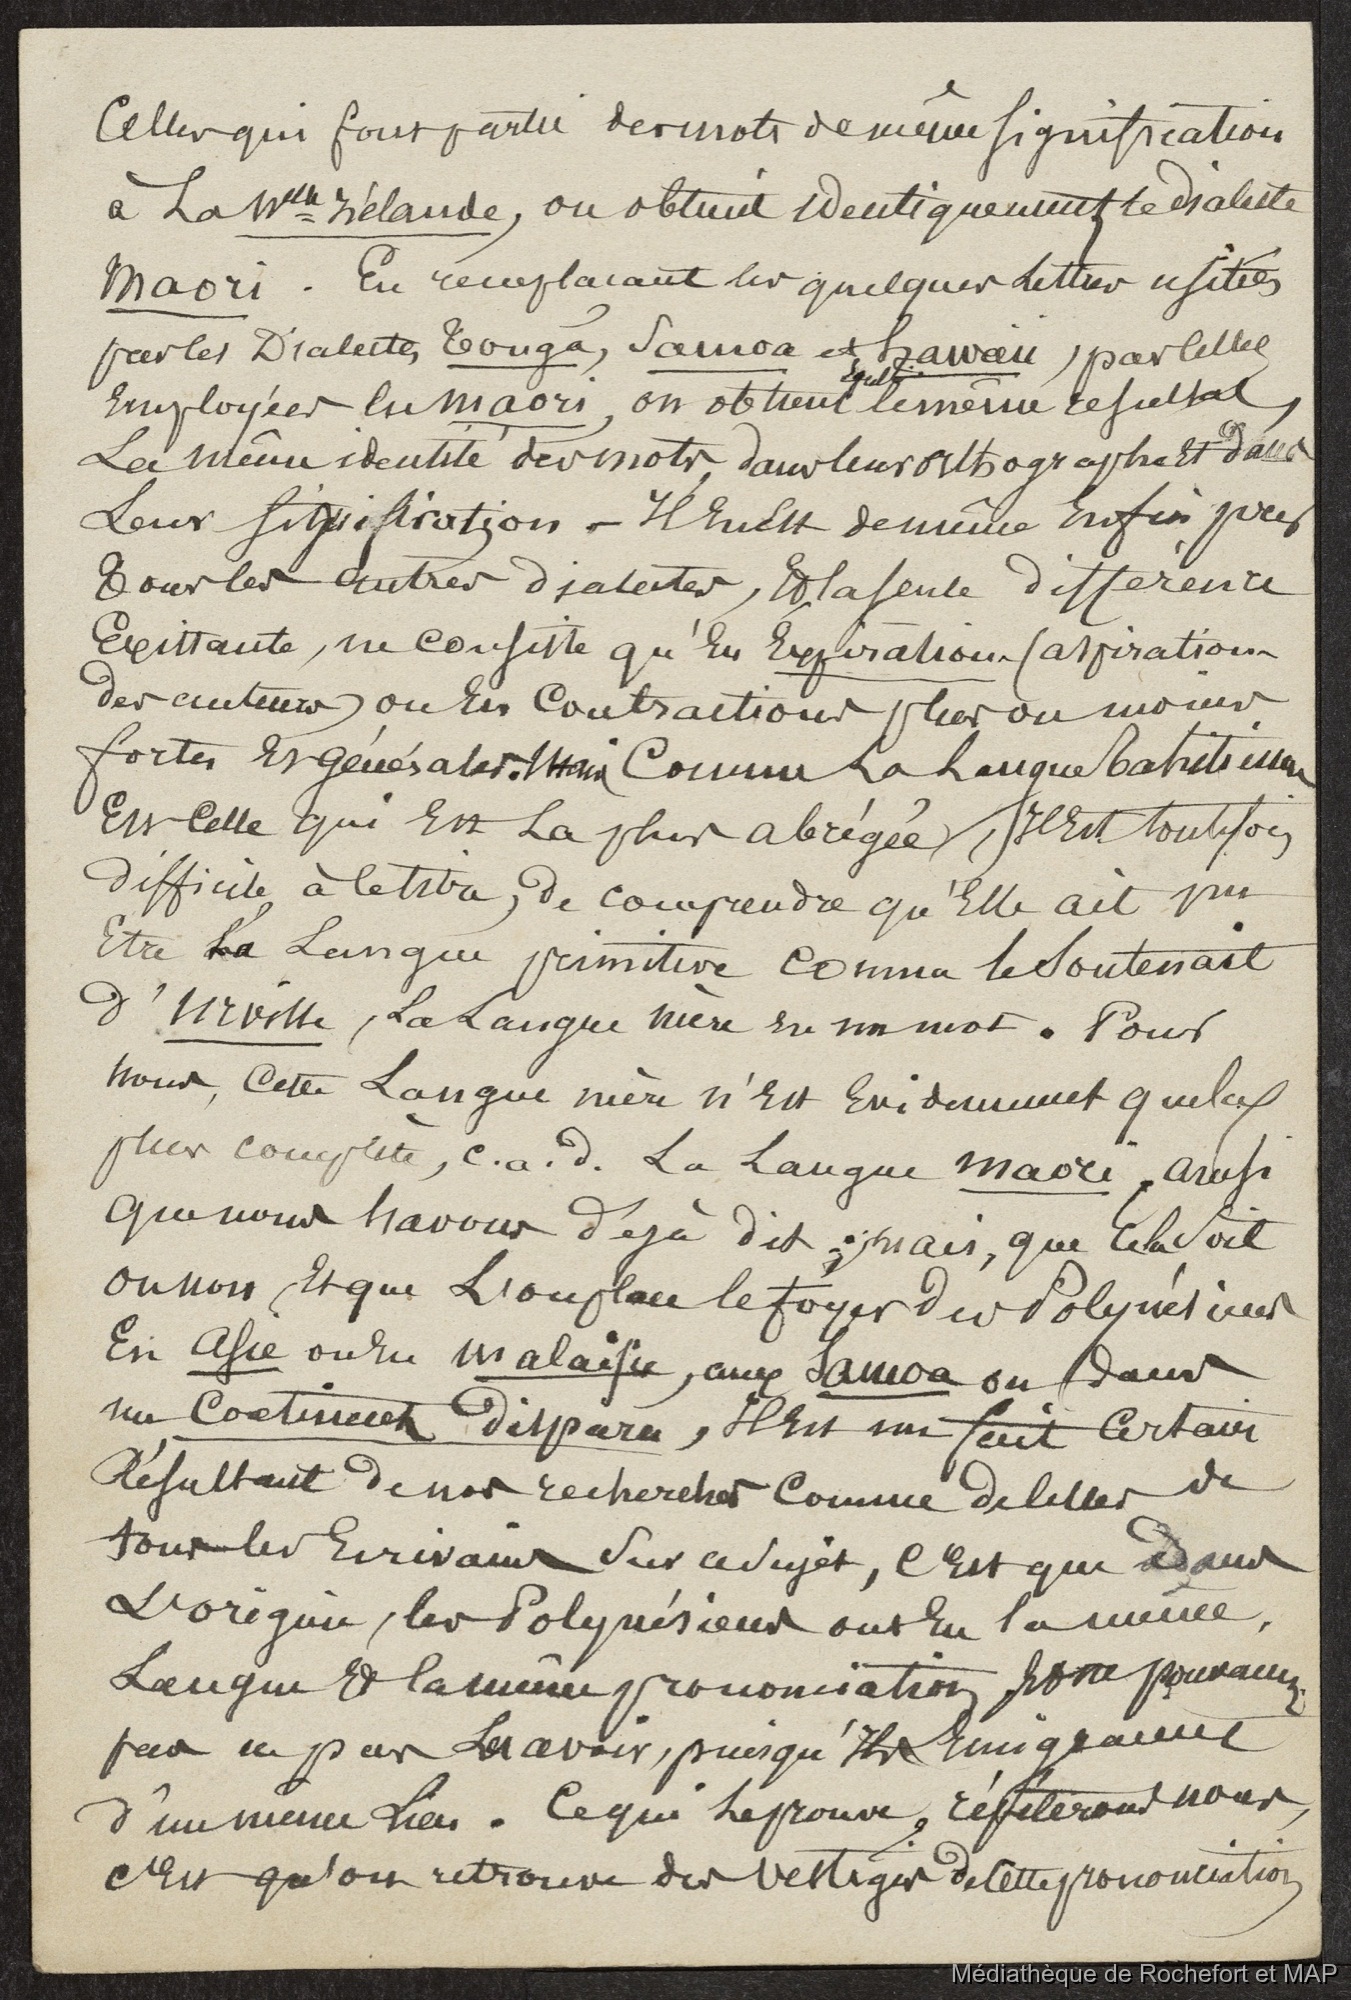 Celles qui font partie des mots de même signification
à La Nlle Zélande, on obtient identiquement le dialecte
Maori. En remplacant les quelques lettres usitées
par les Dialectes Tonga, Samoa et hawaii, par celles
Employées En maori, on obtient le même resultat,
La même identité des mots, dans leur orthographe Et dans
Leur signification - Il En Est de même Enfin pour
Tous les autres dialectes, Et la seule différence
Existante, ne consiste qu'En Expiration (aspiration
des auteurs) ou En Contractions plus ou moins
fortes Et générales. Mais Comme La Langue tahitienne
Est Celle qui Est La plus abrégée, Il Est toutefois
difficile, à ce titre, de comprendre qu'Elle ait pu
Etre La Langue primitive comme le Soutenait
d'Urville, La Langue mère en un mot. Pour
nous, cette Langue mère n'Est Evidemment que la
plus complète, c.a.d. La Langue maori, ainsi
que nous l'avons déjà dit; mais, que cela soit
ou non, Et que L'on place le foyer des Polynésiens
En Asie ou En malaisie, aux Samoa ou dans
un Continent disparu, Il Est un fait Certain
Résultant de nos recherches Comme de celles de
tous les Ecrivains Sur ce Sujet, C'Est que dans
L'origine, les Polynésiens ont Eu la même
Langue Et la même prononciation, Et ne pouvaient
pas ne pas L'avoir, puisqu'Ils Emigraient
d'un même Lieu. Ce qui Le prouve, répéterons nous,
c'Est qu'on retrouve des vestiges de Cette prononciation
Médiathèque de Rochefort et MAP